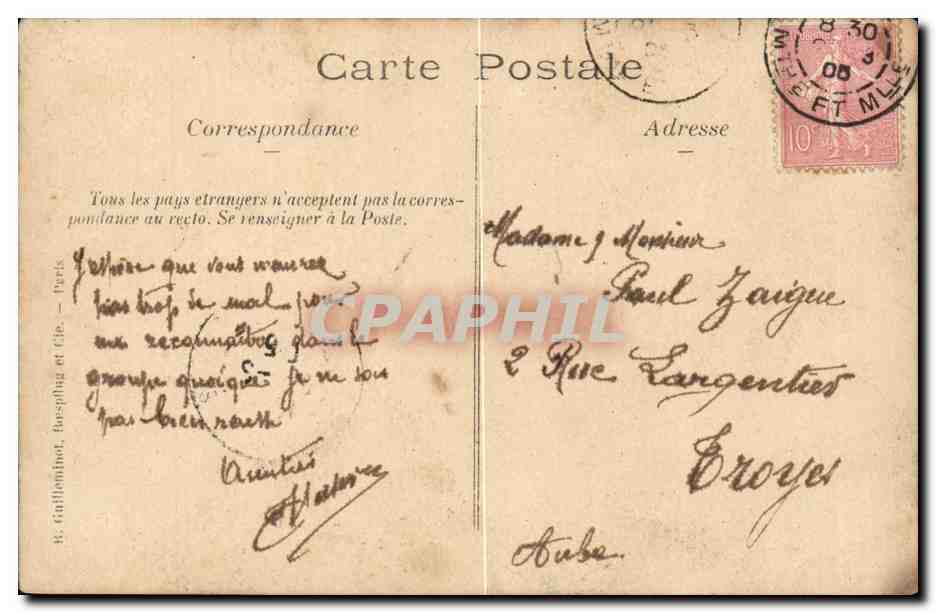 Carte Postale
Correspondance
Adresse
Tous les pays etrangers n'acceptent pas la corres-
pondance au recto. Se renseigner à la Poste.
J'espère que vous n'aurez
pas trop de mal pour
me reconnaitre dans le
groupe quoique je ne sois
pas bien
Amitiés
Madame & Monsieur
Paul Zaigue
2 Rue Largentier
Troyes
Aube.
R. Guilleminot, Bœspflug et Cie. — Paris
CPAPHIL
8 30
3
05
10